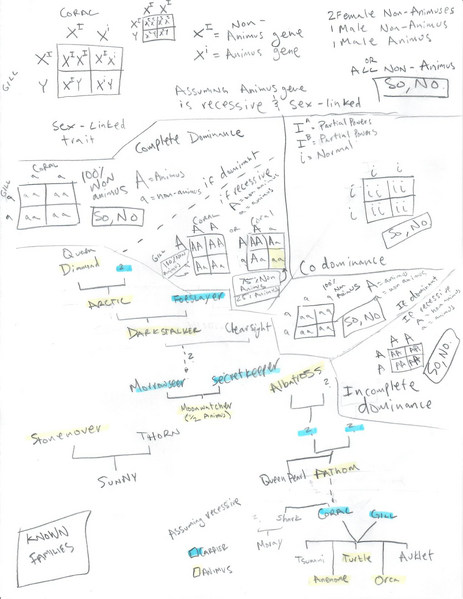 CORAL
X^I X^i
GILL
X^I X^I X^I X^I X^i
Y X^I Y X^i Y
X^I X^I
X^I = Non-Animus gene
X^i = Animus gene
Assuming Animus gene
is recessive & sex-linked
2 Female Non-Animuses
1 Male Non-Animus
1 Male Animus
OR
ALL Non-Animus
So, No.
Sex-Linked
trait
Complete Dominance
CORAL
a a
GILL
a aa aa
a aa aa
100%
Non
animus
So, No
A = Animus
a = non-animus
if dominant
if recessive
A = non-animus
a = animus
Coral
A A
Gill
A AA AA
a Aa Aa
OR
Coral
A a
A AA Aa
a Aa aa
100% Non
Animus
75% Non
Animus
25% Animus
I^A = Partial Powers
I^B = Partial Powers
i = Normal
i i
i ii ii
i ii ii
So, No
Codominance
a a
a aa aa
a aa aa
100%
Non
Animus
So, No
A = animus
a = non-animus
If dominant
If recessive
A = non-animus
a = animus
A A
A AA AA
A AA AA
So, No.
Incomplete
dominance
Queen
Diamond ?
ARCTIC Foeslayer
DARKSTALKER Clearsight
?
Morrowseer Secretkeeper
Moonwatcher
(1/2 Animus)
Stonemover THORN
SUNNY
Albatross ?
? ?
Queen Pearl FATHOM
Shark CORAL GILL
Moray
Tsunami Turtle Auklet
Anemone Orca
Assuming recessive
CARRIER
ANIMUS
KNOWN
FAMILIES